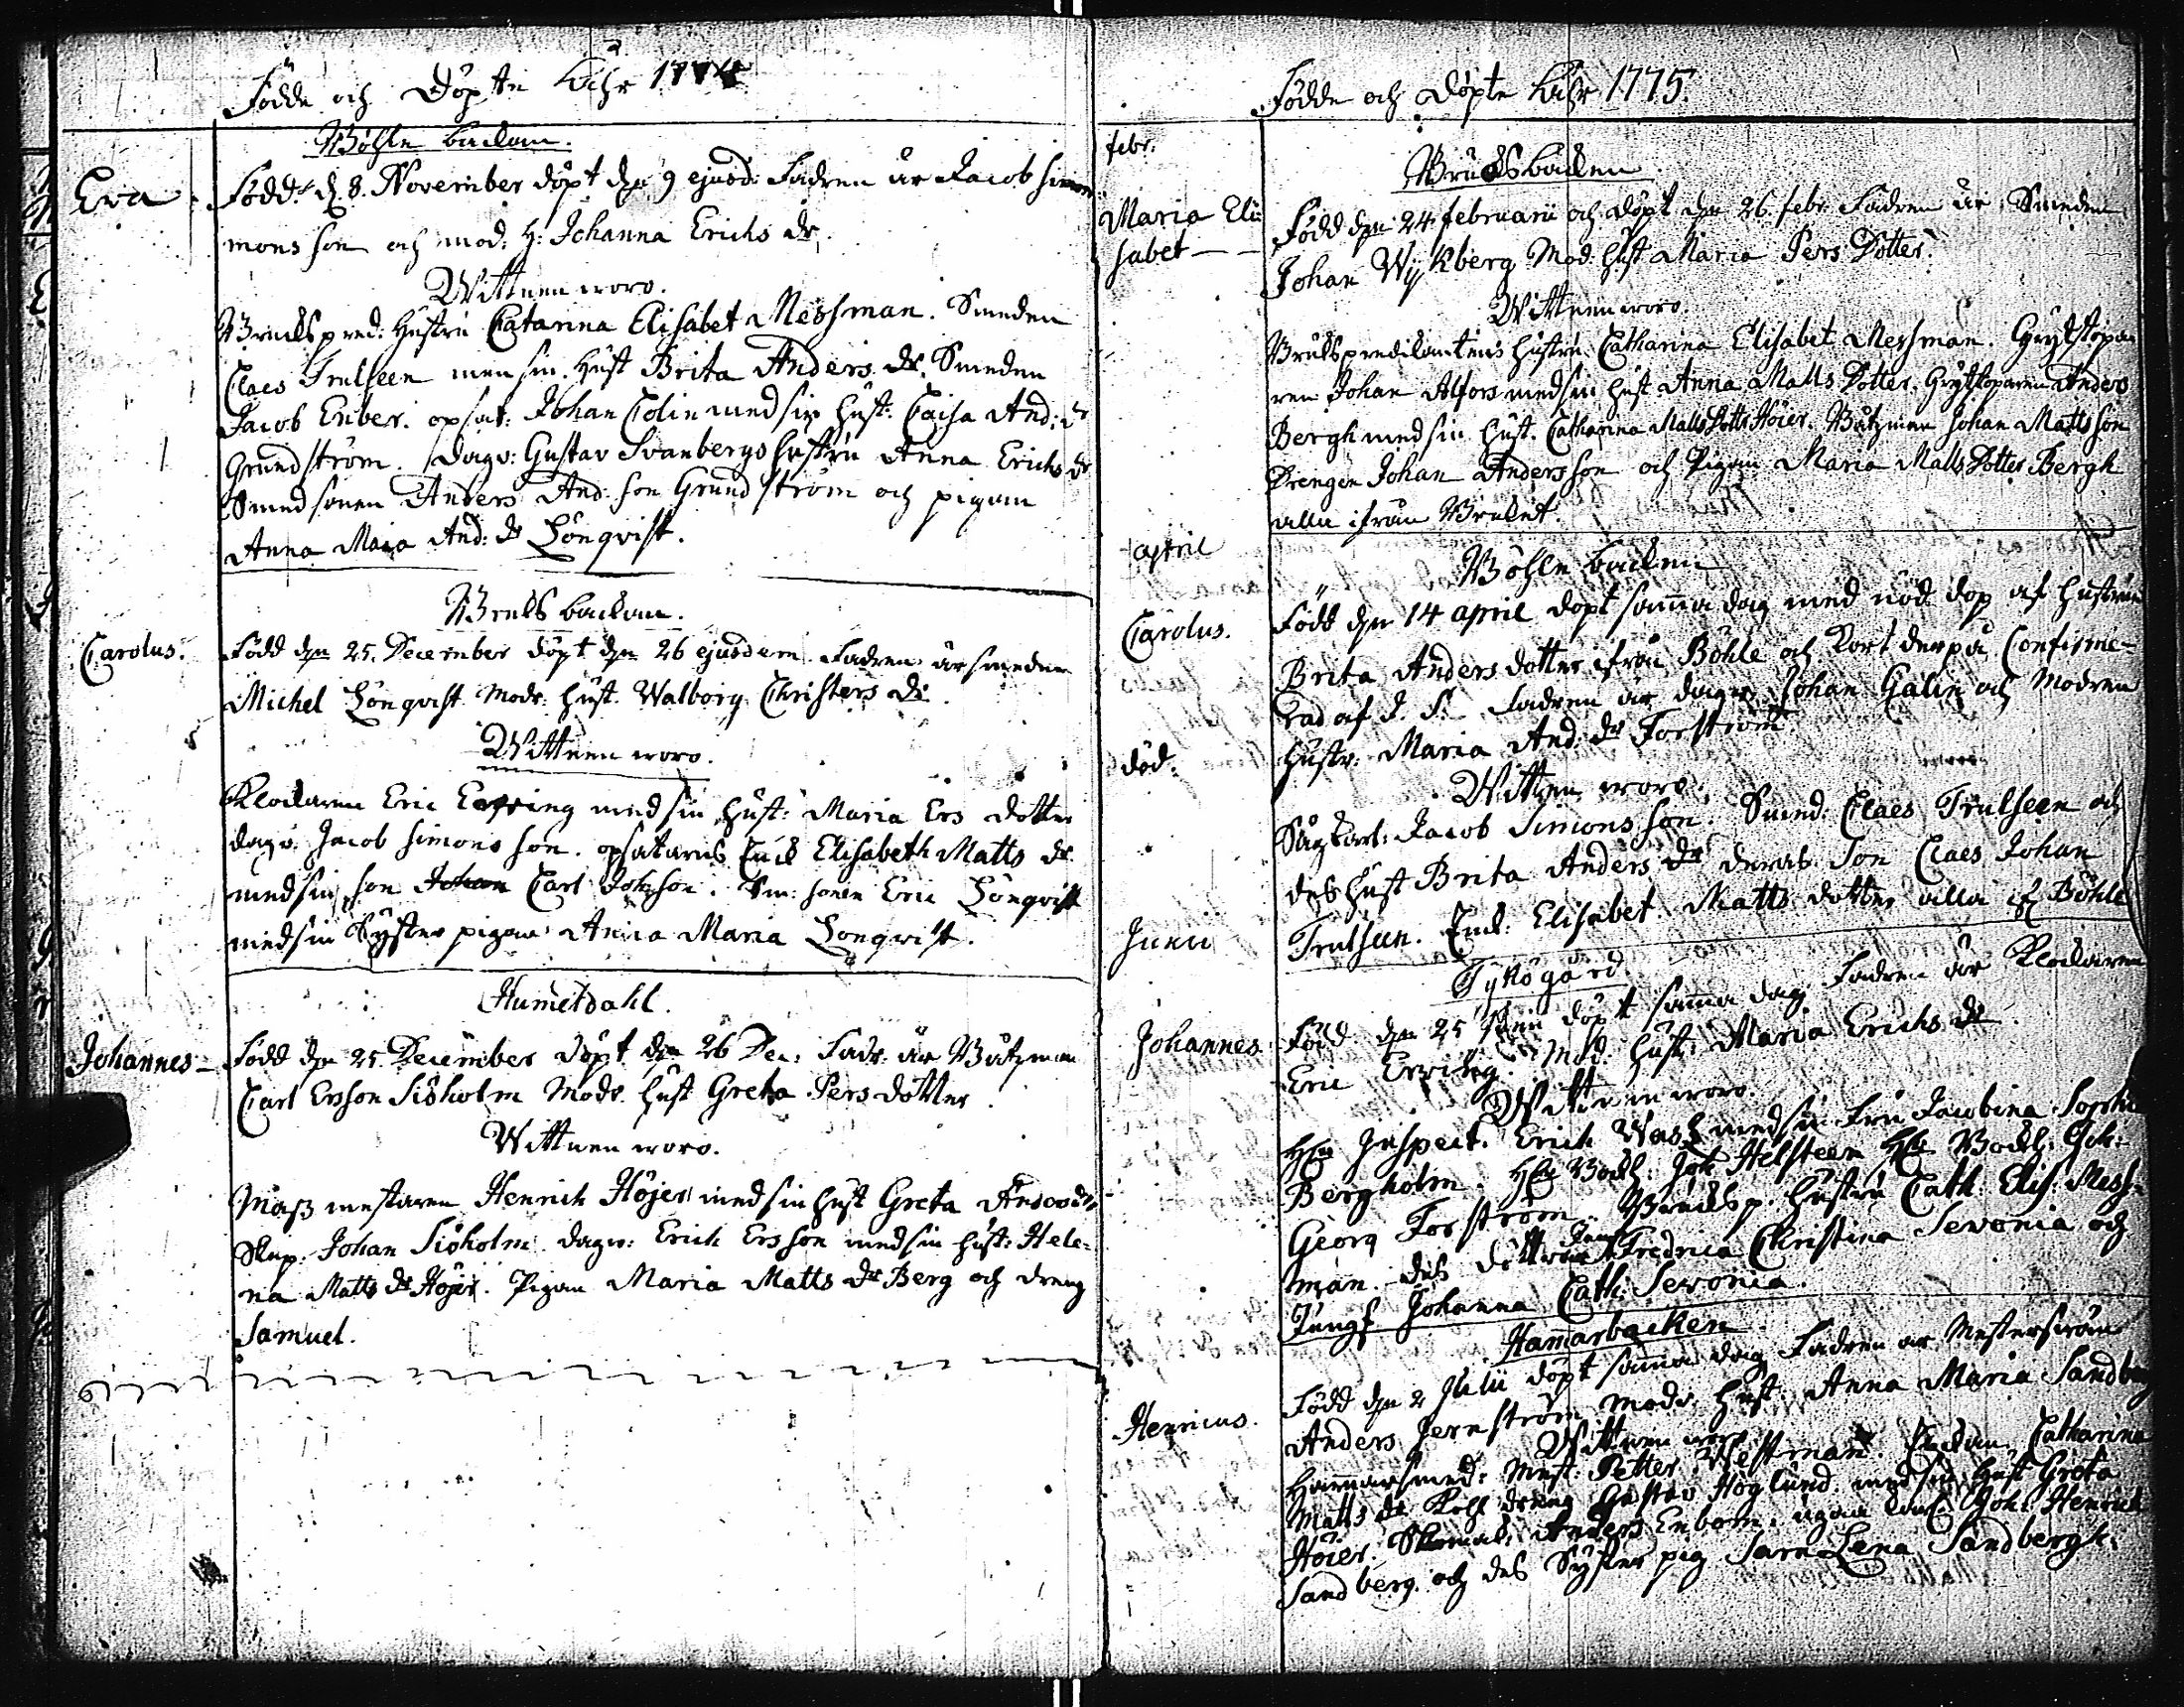 Födde och Döpte Åhr 1774
Böhle backan.
Eva. Född d. 8. November döpt den 9 ejusd. Fadren är Jacob Simon
mons son och mod: H: Johanna Erichs dr.
Wittnen woro.
Bruckspred: Hustru Catarina Elisabet Messman. Smeden
Claes Trulseen men sin Hust Brita Anders dr. Smeden
Jacob Enber. opsat: Johan Colin med sin hust: Caisa And: dr
Grundström. Dagv: Gustav Svanbergs hustru Anna Erichs dr
Smedsonen Anders And: son Grundström och pigan
Anna Maja And: dr Lönqvist.
Bruks backan.
Carolus. Född den 25. December döpt den 26 ejusdem. Fadren är smeden
Michel Lönqvist Modr: hust. Walborg Christers dr
Wittnen woro.
Klockaren Eric Erving med sin hust: Maria Ers dotter
dagv. Jacob Simons son. opsatares Enck Elisabeth Matts dr
med sin son Johan Carl Johnson. Sm: sonen Eric Lönqvist
med sin Syster pigan Anna Maria Lonqvist.
Humetdahl.
Johannes Född den 25 December döpt den 26 Dec: Fadr: är Båtzman
Carl Ersson Siöholm Modr. hust Greta Pers dotter
Wittnen woro.
Masmestaren Henrich Höjer med sin hust Greta
Skep. Johan Siöholm. dagv: Erich Ersson med sin hust: Hele-
na Matts dr Höjer. Pigan Maria Matts dr Berg och dreng
Samuel.
Födde och döpte Åhr 1775.
febr.
Bruksbacken
Maria Eli-
sabet Född den 24 februarii och döpt den 26 febr. Fadren är Smeden
Johan Wykberg Mod: hust Maria Pers Dotter.
Wittnen woro.
Brukspredikantens hustru Catharina Elisabet Messman. Grytstöpa-
ren Johan Alfors med sin hust. Anna Matts Dotter. Grytstöparen Anders
Bergh med sin hust. Catharina Matts Dotter Höier. Båtzman Johan Mattsson
Drengen Johan Andersson och Pigan Maria Matts Dotter Bergh
alla ifrån Bruket.
april
Böhle backen
Carolus. Född den 14 april döpt samma dag med nöd dop af hustrun
Brita Anders dotter ifrån Böhle och kort derpå Confirme-
rad af J. S. Fadren är dagv. Johan Galin och Modren
död. hustr: Maria And: dr Forström.
Wittnen woro.
Sågkarl: Jacob Simons son. Smed. Claes Trulseen och
des hust Brita Anders dr deras Son Claes Johan
Trulseen. Enck: Elisabet Matts dotter alla if Böhle
Junii
Tykö gård
Johannes. Född den 25 Junii döpt samma dag Fadren är Klockaren
Eric Erving. Mod: hust. Maria Erichs dr
Wittnen woro.
Hr Inspect. Erich Wasz med sin Fru Jacobina Sophia
Bergholm. Hr Bockh: Joh Helsteen Hr Bockh:
Georg Forström. Brucksp. hustru Cath: Elis: Mess-
man. des döttrar Jungf Fredrica Christina Sevonia och
Jungf Johanna Cath: Sevonia.
Hamarbacken
Henricus. Född den 2 Julii döpt samma dag Fadren är Mestersven
Anders Jernström Modr. hust: Anna Maria Sandberg
Wittnen woro
Hammarsmed: Mest: Petter Westman. Enckan Catharina
Matts dr Kohl dreng Gustav Höglund med sin hust Greta
Höier. Anders Enbom. Joh: Henrich
Sandberg och des Syster pig Sara Lena Sandbergh.